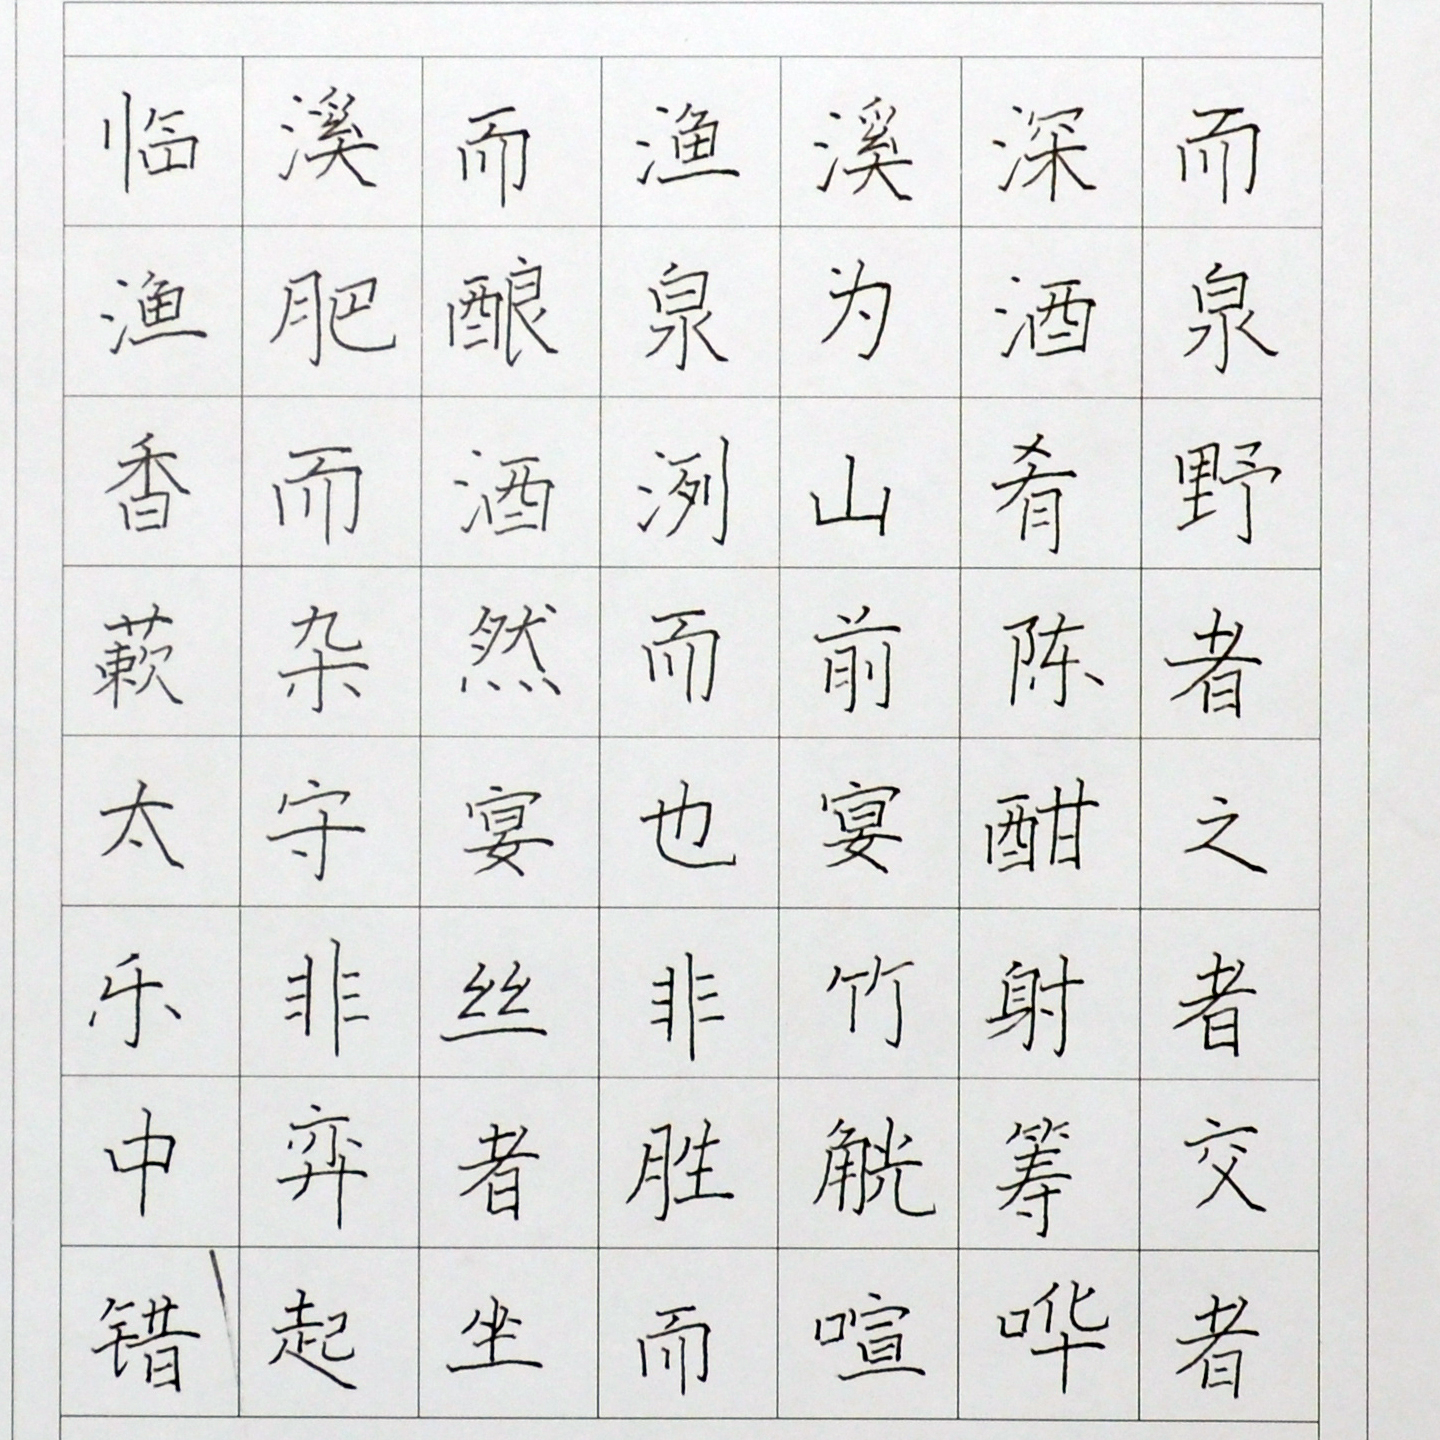 临溪而渔溪深而
渔肥酿泉为酒泉
香而酒洌山肴野
蔌杂然而前陈者
太守宴也宴酣之
乐非丝非竹射者
中弈者胜觥筹交
错起坐而喧哗者